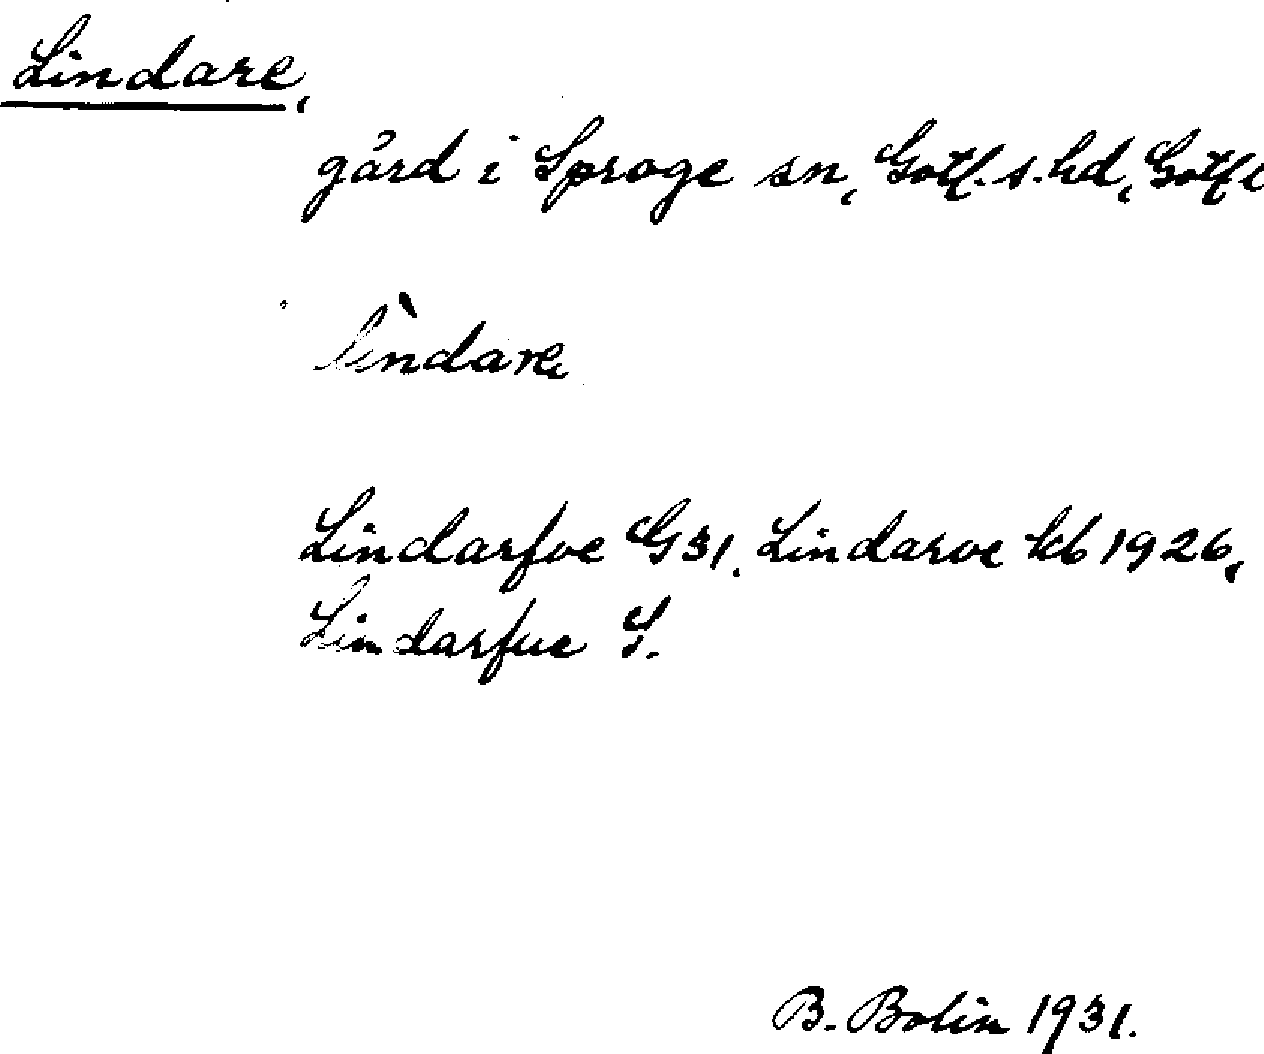 Lindare,
gård i Sproge sn, Gotl. s. hd, Gotl. l
lìndare,
Lindarfve G31. Lindarve kb 1926,
Lindarfve S.
B. Bolin 1931.